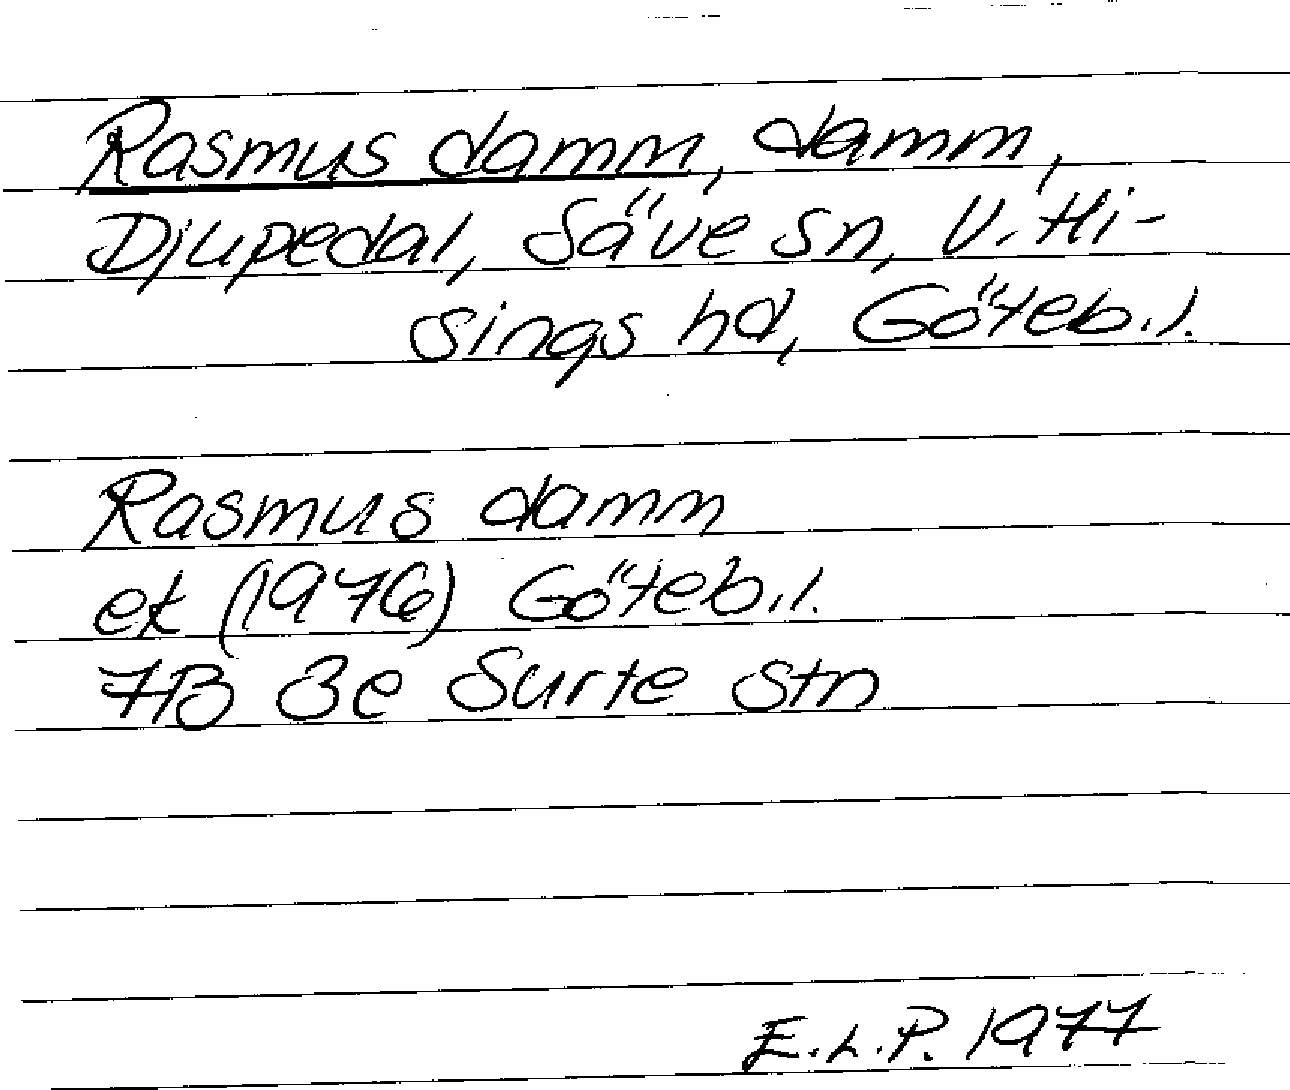 Rasmus damm, damm,
Djupedal, Säve sn, V. Hi-
sings hd, Göteb. l.
Rasmus damm
ek (1976) Göteb. l.
7B 3e Surte stn
E. L. P. 1977